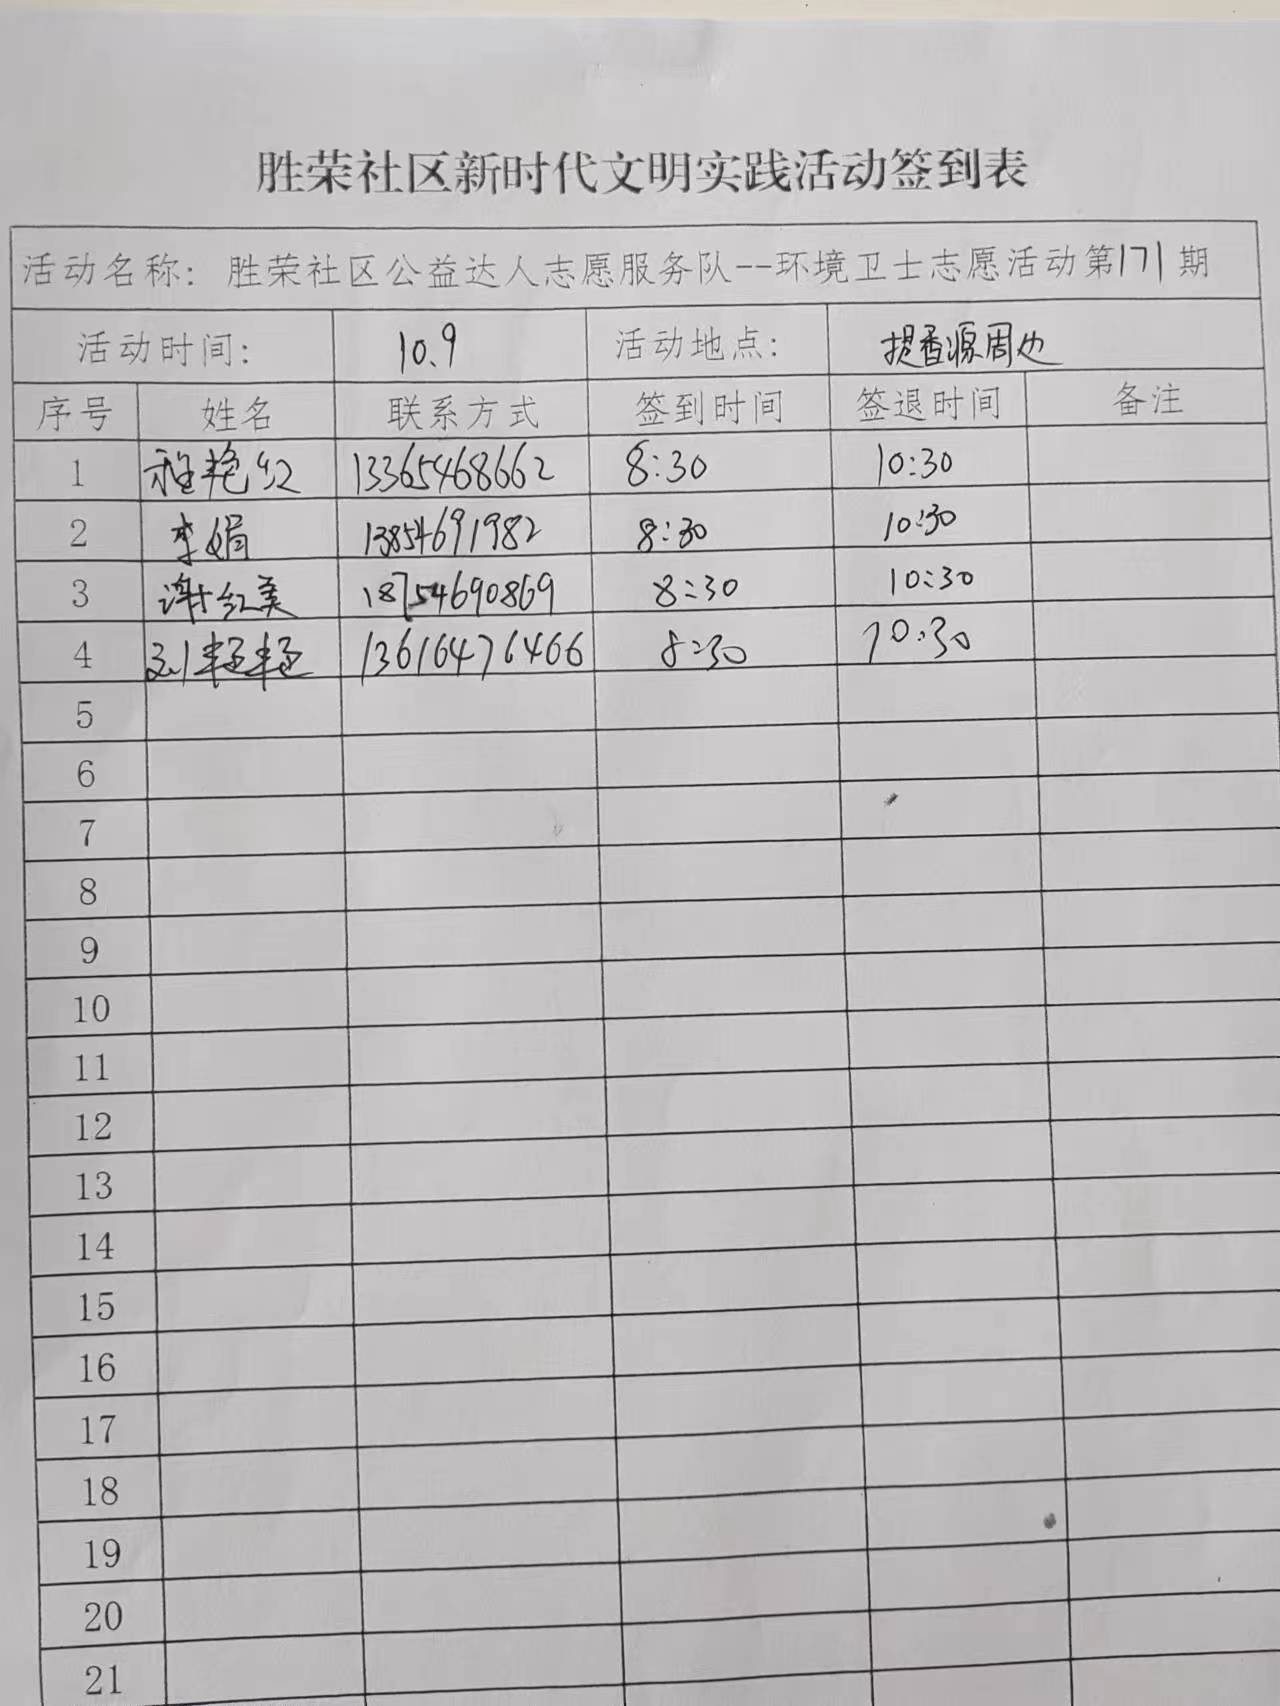 胜荣社区新时代文明实践活动签到表
活动名称：胜荣社区公益达人志愿服务队--环境卫士志愿活动第171期
活动时间： 10.9 活动地点： 提香源周边
序号 姓名 联系方式 签到时间 签退时间 备注
1 艳红 13365468662 8:30 10:30
2 李娟 13854691982 8:30 10:30
3 谢红美 18754690869 8:30 10:30
4 刘 13616476466 8:30 10:30
5
6
7
8
9
10
11
12
13
14
15
16
17
18
19
20
21